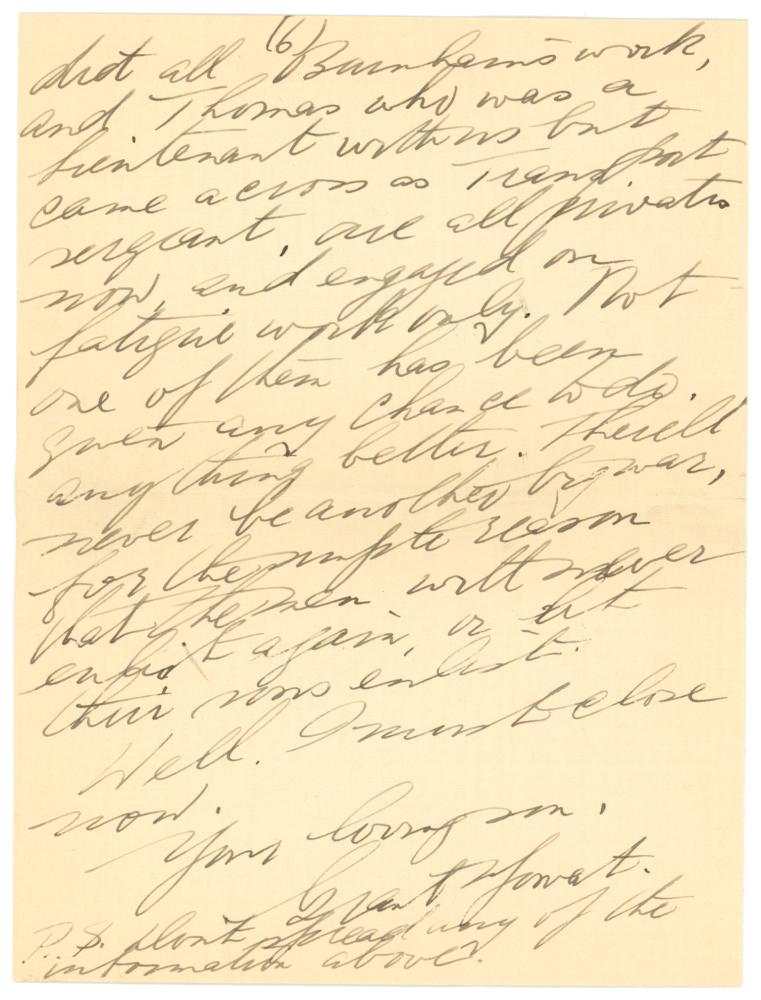 (6)
did all Burnham's work,
and Thomas who was a
lieutenant with us but
came across as Transport
sergeant, are all privates
now, and engaged on
fatigue work only. Not
one of them has been
given any chance to do
anything better. There'll
never be another big war,
for the simple reason
that the men will never
enlist again, or let
their sons enlist.
Well. I must close
now.
Your loving son,
Grant Mowat.
P.S. Don't spread any of the
information above.